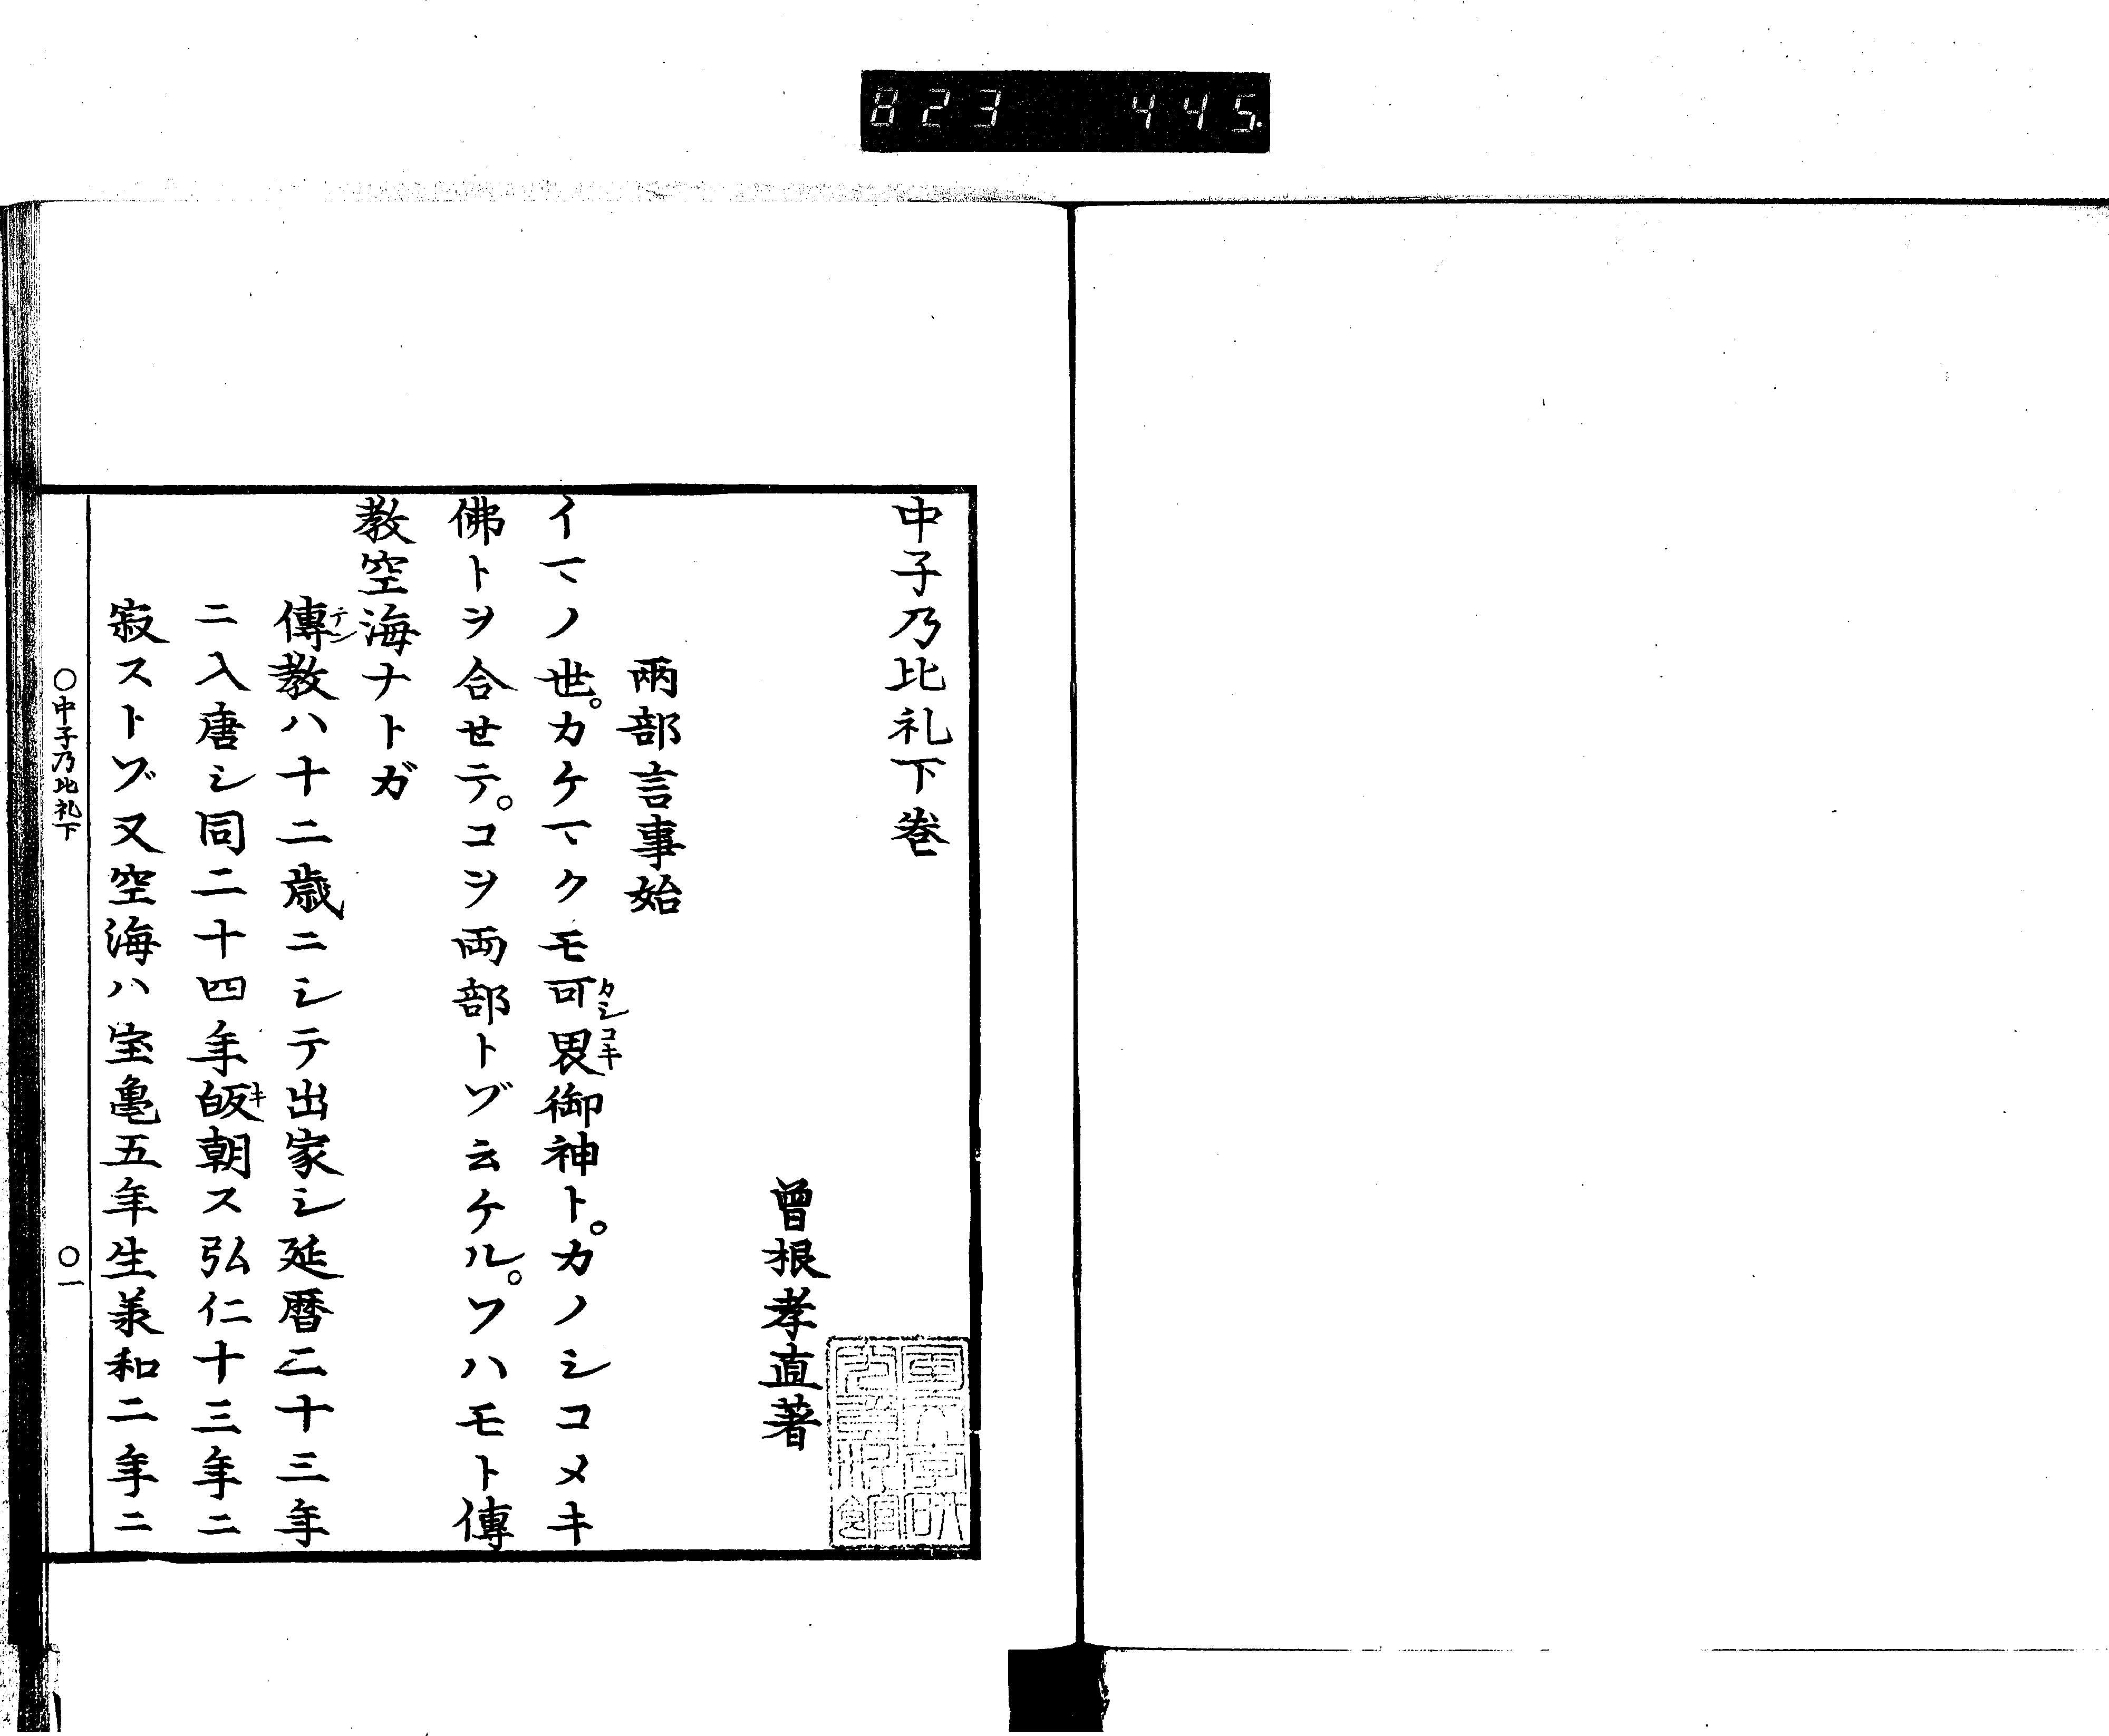 823 445
中子乃比礼下巻
曾根孝直著
兩部言事始
イマノ世。カケマクモ可畏御神ト。カノシコメキ
カシコキ
佛トヲ合せテ。コヲ両部トゾ云ケル。ソハモト傳
教空海ナトガ
傳教ハ十二歳ニシテ出家シ延暦二十三年
テン
ニ入唐シ同二十四年皈朝ス弘仁十三年ニ
キ
寂ストゾ又空海ハ宝亀五年生羕和二年ニ
〇中子乃比礼下
〇一